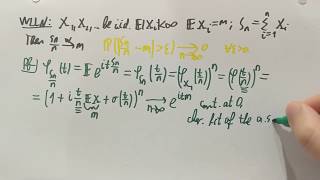 WLLN: X₁, X₂, ... be iid. E|X₁|<∞ EX₁=m; Sₙ = ∑ᵢ₌₁ⁿ Xᵢ
Then Sₙ/n → m P(|Sₙ/n - m|>ε) → 0 ∀ε>0
Pf φ_{Sₙ/n}(t) = E e^{it Sₙ/n} = φ_{Sₙ}(t/n) = (φ_{X₁}(t/n))ⁿ = (φ(t/n))ⁿ =
= (1 + i t/n EX + o(t/n))ⁿ → e^{itm} cont. at 0,
m n→∞ char. fct of the a.s